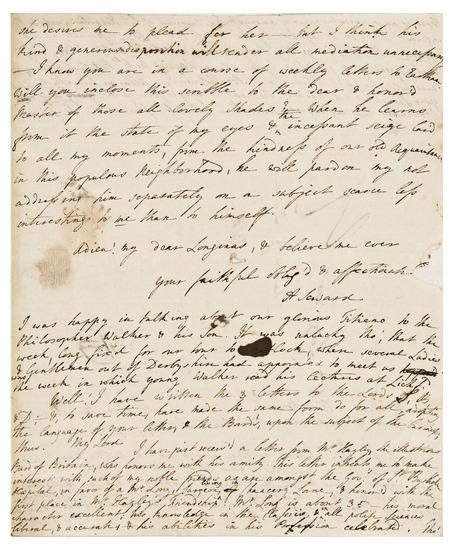 she desires me to plead for her — but I think his
kind & generous disposition will render all mediation unnecessary
— I know you are in a course of weekly letters to Eartham
Will you inclose this scribble to the dear & honor'd
Master of those all lovely shades & when he learns
from it the state of my eyes & the incessant seige laid
to all my moments, from the kindness of our old Acquaintance
in this populous Neighborhood, he will pardon my not
addressing him separately on a subject scarce less
interesting to me than to himself.
Adieu! my dear Longinus, & believe me ever
your faithful oblig'd & affectionate
A Seward
I was happy in talking about our glorious Titiano to the
Philosopher Walker & his Son. It was unlucky tho', that the
week, long fix'd for our tour to where several Ladies
& Gentlemen out of Derbyshire had appointed to meet us
was the week in which young Walker read his lectures at Lichd
Well! I have written the letters to the Lords
& D: & to save time, have made the same form do for all, adopting
the language of your letter, & the Bards, upon the subject of the
thus. My Lord
I have just receiv'd a letter from Mr Hayley, the illustrious
Bard of Britain, who honors me with his amity. This letter intreats me to make
interest with such of my noble friends as are amongst the Gov: of
Hospital, in favor of Mr Long, Surgeon, Chancery Lane, & honor'd with the
first place in Mr Hayley's friendship. Mr Long is about 35 — his moral
character excellent, his knowledge in the Classics, & all polite Sciences
liberal, & accurate & his abilities in his Profession celebrated. Tho'